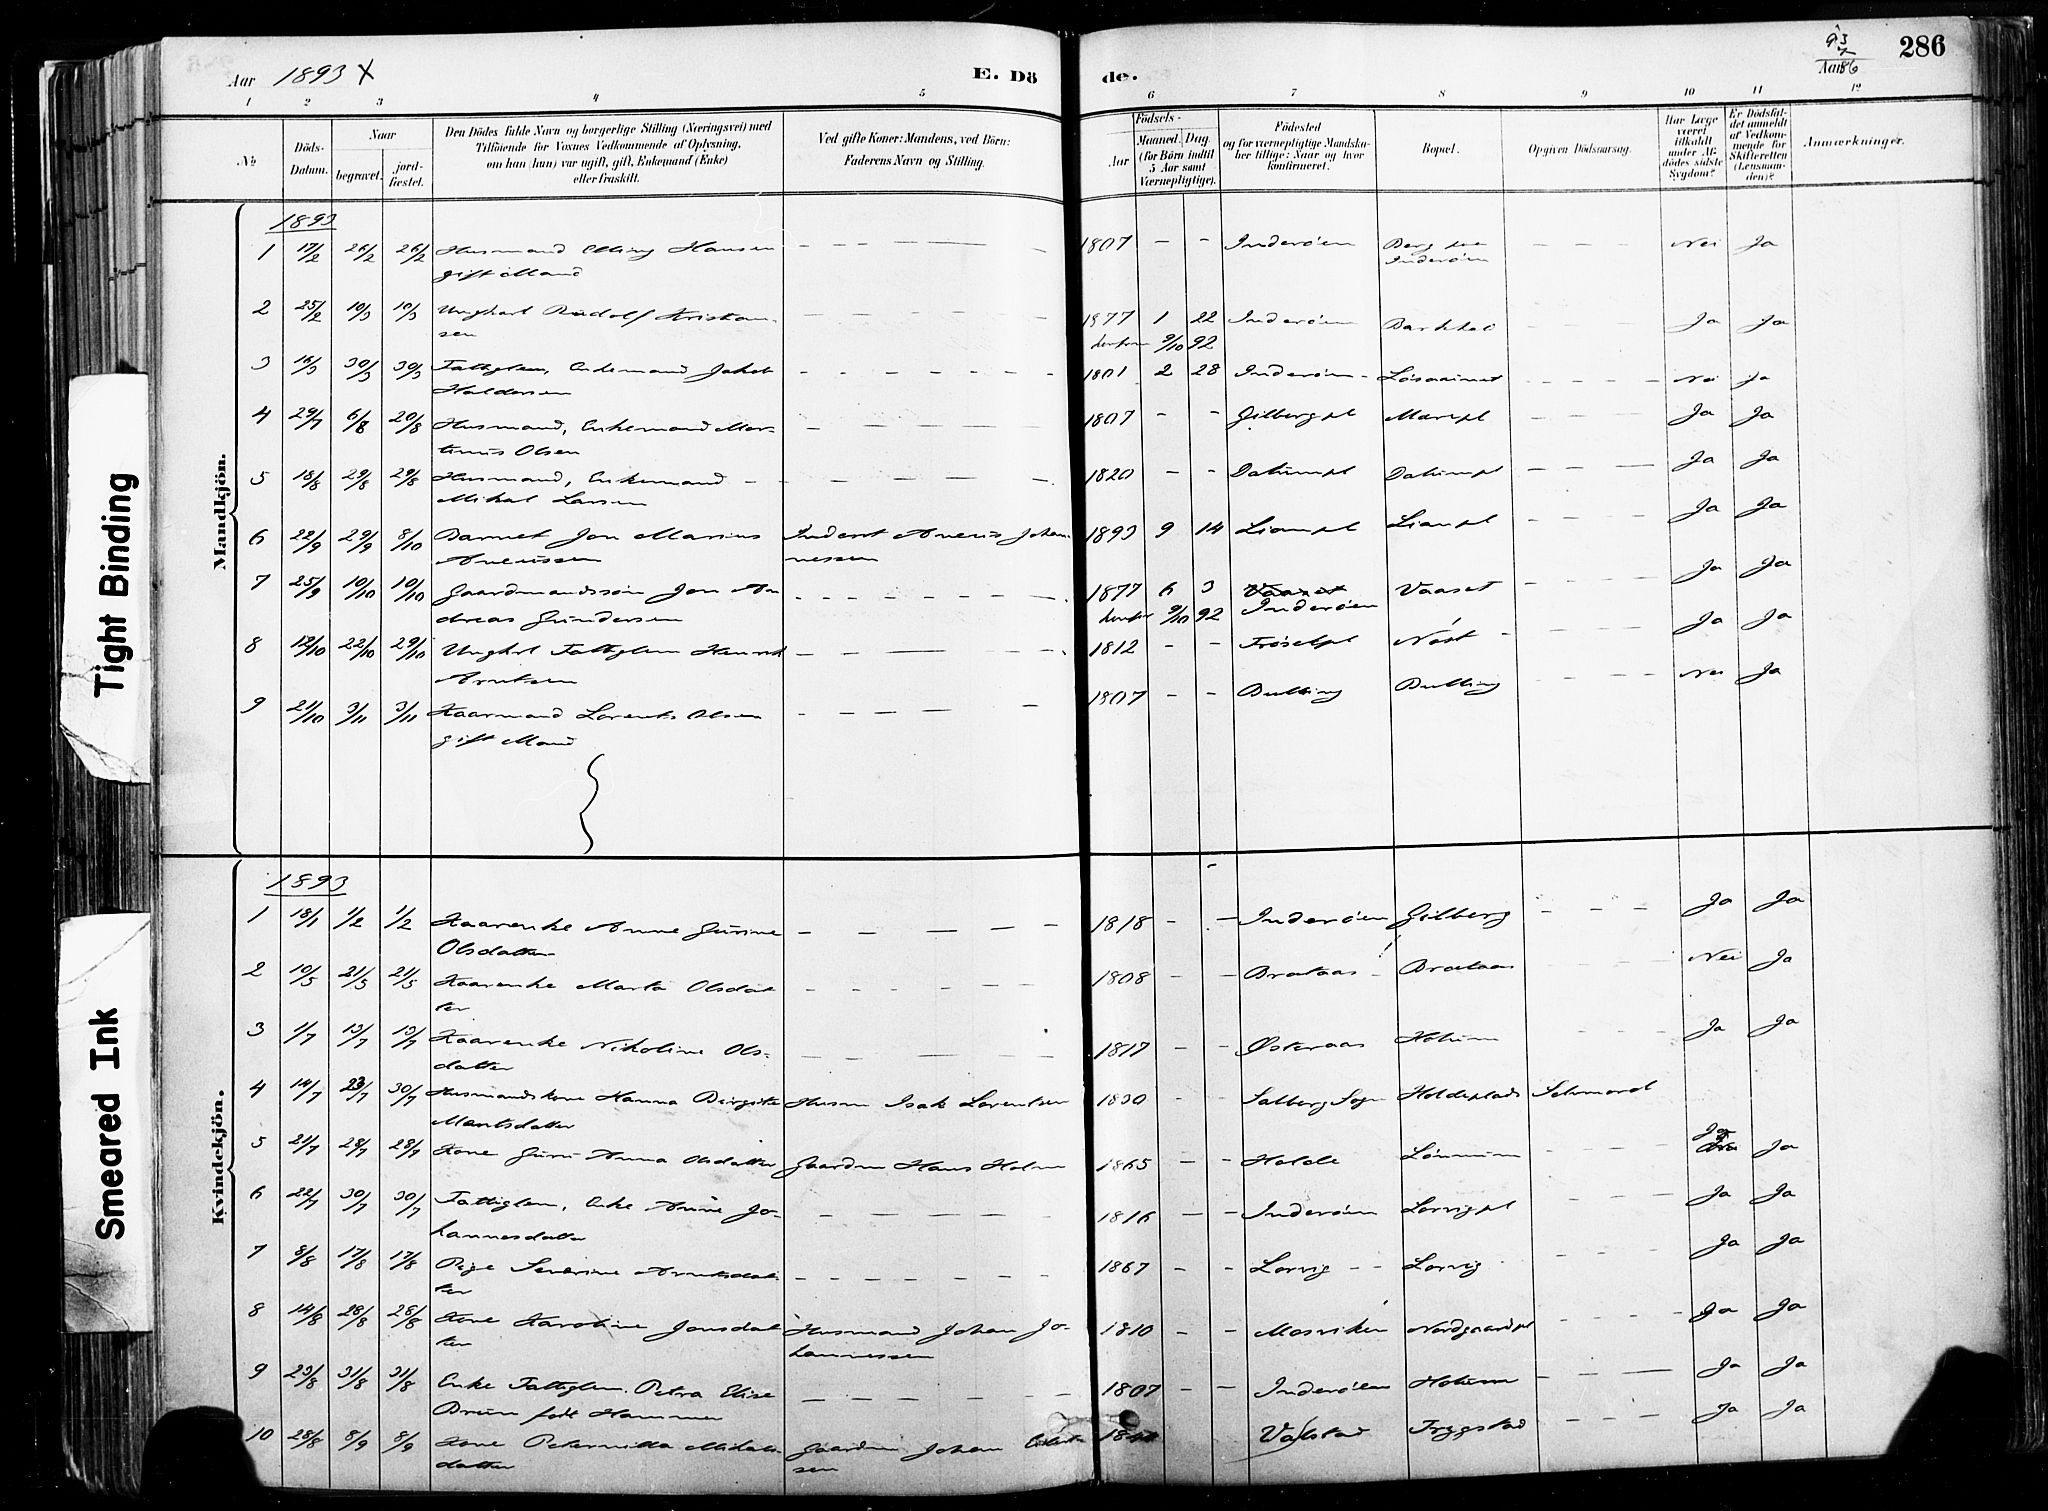 93
x
86
286
Aar 1893 X
E. Dö
de.
Aar
1 2 3 4 5 6 7 8 9 10 11 12
No
Döds-
Datum.
Naar
begravet.
jord-
fæstet.
Den Dödes fulde Navn og borgerlige Stilling (Næringsvei) med
Tilföiende for Voxnes Vedkommende af Oplysning,
om han (hun) var ugift, gift, Enkemand (Enke)
eller fraskilt.
Ved gifte Koner: Mandens, ved Börn:
Faderens Navn og Stilling.
Födsels-
Aar
Maaned. Dag.
(for Börn indtil
5 Aar samt
Værnepligtige).
Födested
og for værnepligtige Mandska-
ber tillige: Naar og hvor
konfirmeret.
Bopæl.
Opgiven Dödsaarsag.
Har Læge
været
tilkaldt
under Af-
dödes sidste
Sygdom?
Er Dödsfal-
det anmeldt
af Vedkom-
mende for
Skifteretten
(Lensman-
den)?
Anmærkninger.
Mandkjön.
1893
1 17/2 26/2 26/2 Husmand Elling Hansen 1807 - - Inderöen Nei Ja
gift Mand Inderöen
2 25/2 10/3 10/3 Ungkarl Rudolf Kristian- 1877 1 22 Inderöen Ja Ja
sen 9/10 92
3 16/3 30/3 30/3 Fattiglem, Enkemand Jakob 1801 2 28 Inderöen Nei Ja
Haldorsen
4 29/7 6/8 20/8 Husmand, Enkemand Mar- 1807 - - Gilberg pl Marepl Ja Ja
tinus Olsen
5 18/8 29/8 29/8 Husmand, Enkemand 1820 - - Dalum pl Dalum pl Ja Ja
Mikal Larsen
6 22/9 29/9 8/10 Barnet Jon Marius Inderst Aneris Johan- 1893 9 14 Liampl Liampl Ja Ja
nessen
7 25/9 10/10 10/10 Gaardmandssön Jon An- 1877 6 3 Vaaset Vaaset Ja Ja
dreas Gundersen 9/10 92 Inderöen
8 12/10 22/10 29/10 Ungkrl Fattiglem Henrik 1812 - - Fröselpl Nöst Ja Ja
Arntsen
9 21/10 3/11 3/11 Kaarmand Lorents Olsen 1807 - - Dulling Dulling Nei Ja
gift Mand
Kvindekjön.
1893
1 18/1 1/2 1/2 Kaarenke Anne Gurine 1818 - - Inderöen Gilberg Ja Ja
Olsdatter
2 10/5 21/5 21/5 Kaarenke Marta Olsdat- 1808 - - Brataas Brataas Nei Ja
ter
3 1/7 13/7 13/7 Kaarenke Nikoline Ols- 1817 - - Østeraas Holum Ja Ja
datter
4 14/7 23/7 30/7 Husmandskone Hanna Birgitte Husm Isak Lorentsen 1830 - - Salberg Sogn Holdeplads Selvmord
Mentsdatter
5 21/7 28/7 28/7 Kone Guru Anna Olsdatter Gaardm Hans Holm 1865 - - Holde Lönnum Ja Ja
6 22/7 30/7 30/7 Fattiglem, Enke Anne Jo- 1816 - - Inderöen Lorvigpl Ja Ja
hannesdatter
7 8/8 17/8 17/8 Pige Severine Arntsdat- 1867 - - Lorvig Lorvig Ja Ja
ter
8 14/8 28/8 28/8 Kone Karoline Jonsdat- Husmand Johan Jo- 1810 - - Mosviken Nordgaardpl Ja Ja
ter hannessen
9 23/8 31/8 31/8 Enke Fattiglem. Petra Elise 1807 - - Inderöen Holum Ja Ja
Bruun född Hammer
10 28/8 8/9 8/9 Kone Peternilla Mikals- Gaardm Johan Valstad Trygstad Ja Ja
datter sen
Tight Binding
Smeared Ink